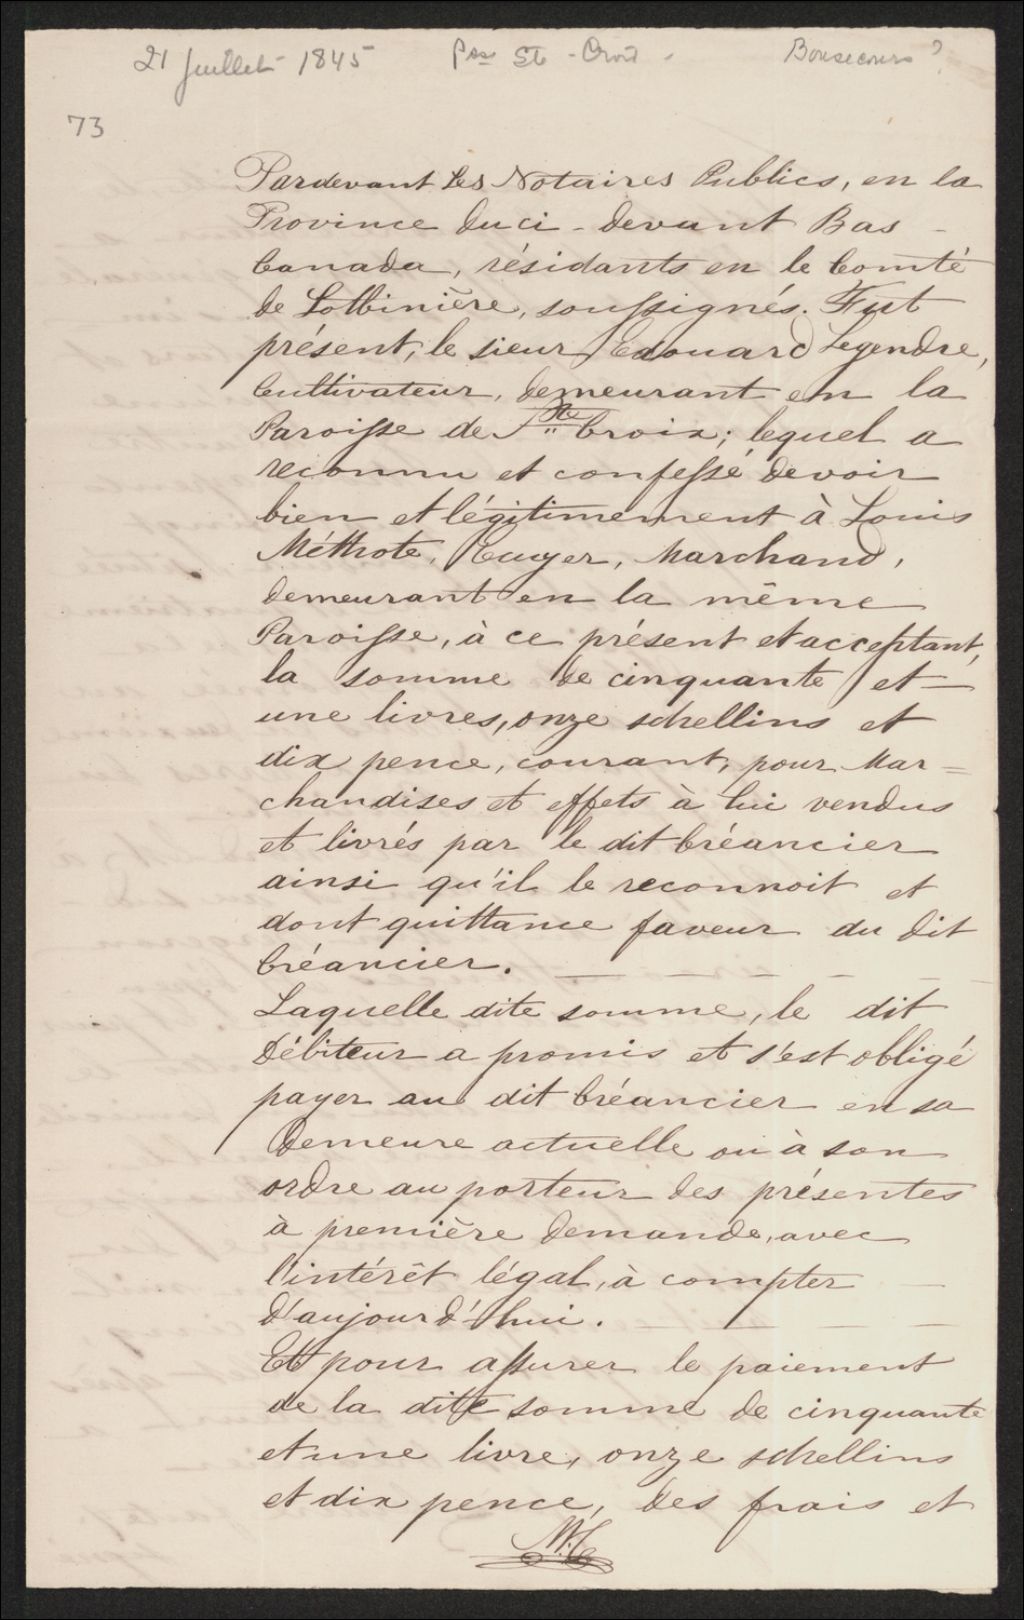 21 Juillet 1845 Psse Ste-Croix - Bonsecours ?
73
Pardevant Les Notaires Publics, en la
Province du ci-devant Bas
Canada, résidants en le Comté
de Lotbinière, soussignés. Fut
présent, le sieur Edouard Legendre,
Cultivateur, demeurant en la
Paroisse de Ste Croix; lequel a
reconnu et confessé devoir
bien et légitimement à Louis
Méthote, Ecuyer, Marchand,
demeurant en la même
Paroisse, à ce présent et acceptant,
la somme de cinquante et
une livres, onze schellins et
dix pence, courant, pour Mar=
chandises et effets à lui vendus
et livrés par le dit Créancier
ainsi qu'il le reconnoit et
dont quittance faveur du dit
Créancier.
Laquelle dite somme, le dit
Débiteur a promis et s'est obligé
payer au dit Créancier en sa
demeure actuelle ou à son
ordre au porteur des présentes
à première demande, avec
l'intérêt légal, à compter
d'aujourd'hui.
Et pour assurer le paiement
de la dite somme de cinquante
et une livre, onze schellins
et dix pence, des frais et